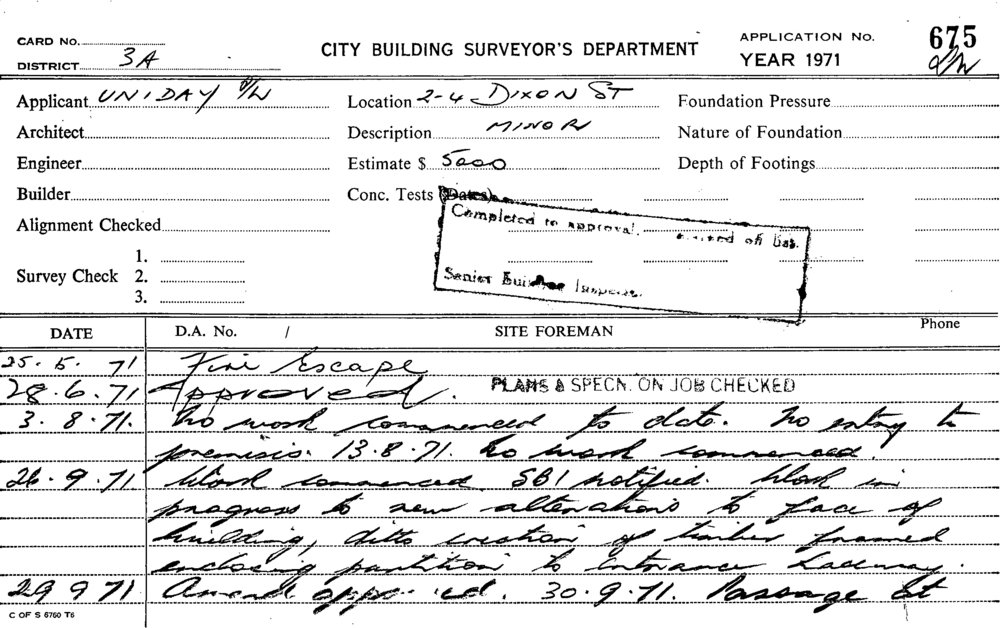 CARD No.
DISTRICT 3A
CITY BUILDING SURVEYOR'S DEPARTMENT
APPLICATION No. 675
YEAR 1971
Applicant UNIDAY P/L Location 2-4 DIXON ST Foundation Pressure
Architect Description MINOR Nature of Foundation
Engineer Estimate $ 5000 Depth of Footings
Builder Conc. Tests (Dates)
Completed to approval. off list.
Alignment Checked
1.
Survey Check 2.
Senior Building Inspector
3.
DATE D.A. No. / SITE FOREMAN Phone
25. 5. 71 Fire Escape
28.6.71 Approved. PLANS & SPECN. ON JOB CHECKED
3.8.71. No work commenced to date. No entry to
premisis. 13.8.71. No work commenced.
26.9.71 Work commenced SBI notified. Work in
progress to new alterations to face of
building, ditto erection of timber framed
enclosing partition to entrance
29 9 71 Amend 30.9.71. Passage at
C OF S 6760 T6